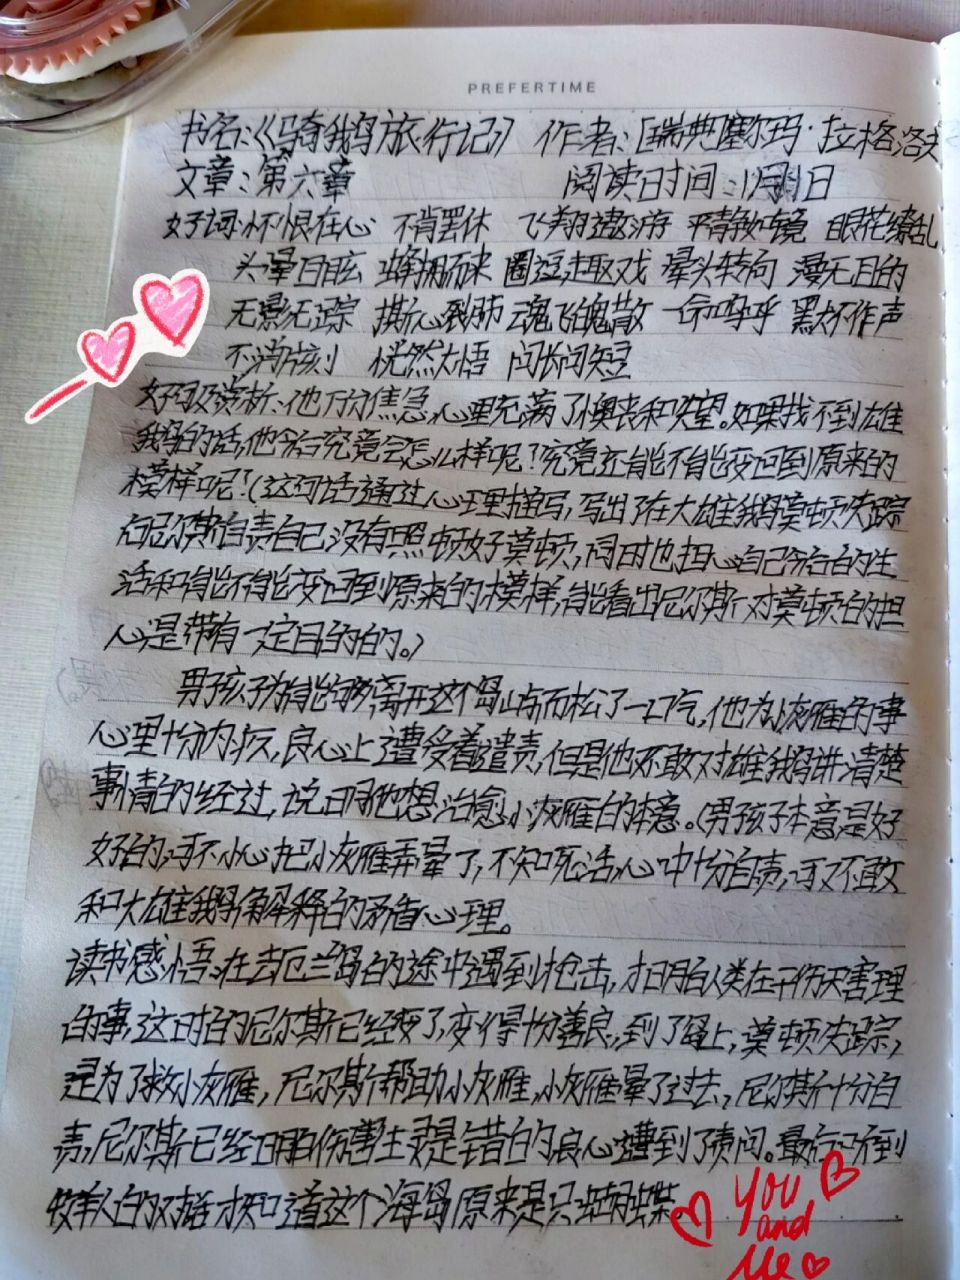 PREFERTIME
书名:《骑鹅旅行记》 作者:[瑞典]塞尔玛·拉格洛夫
文章:第六章 阅读时间:1月1日
好词:怀恨在心 不肯罢休 飞翔遨游 平静如镜 眼花缭乱
头晕目眩 蜂拥而来 圈逗趣戏 晕头转向 漫无目的
无影无踪 撕心裂肺 魂飞魄散 一命呜呼 默不作声
不消片刻 恍然大悟 问长问短
好句及赏析:他万分焦急,心里充满了懊丧和失望。如果找不到雄
鹅的话,他今后究竟会怎么样呢?究竟还能不能变回到原来的
模样呢?(这句话通过心理描写,写出了在大雄鹅莫顿失踪
后尼尔斯自责自己没有照顾好莫顿,同时也担心自己今后的生
活和能不能变回到原来的模样,能看出尼尔斯对莫顿的担
心是带有一定目的的。)
男孩子为能够离开这个岛屿而松了一口气,他为小灰雁的事
心里十分内疚,良心上遭受着谴责,但是他不敢对雄鹅讲清楚
事情的经过,说明他想治愈小灰雁的本意。(男孩子本意是好
好的,可不小心把小灰雁弄晕了,不知死活,心中十分自责,可又不敢
和大雄鹅解释的矛盾心理。
读书感悟:在去厄兰岛的途中遇到枪击,才明白人类在干伤天害理
的事,这时的尼尔斯已经变了,变得十分善良,到了岛上,莫顿失踪,
是为了救小灰雁,尼尔斯帮助小灰雁,小灰雁晕了过去,尼尔斯十分自
责,尼尔斯已经明白伤害生灵是错的,良心遭到了责问。最后听到
牧羊人的对话才知道这个海岛原来是只蝴蝶
You
and
Me